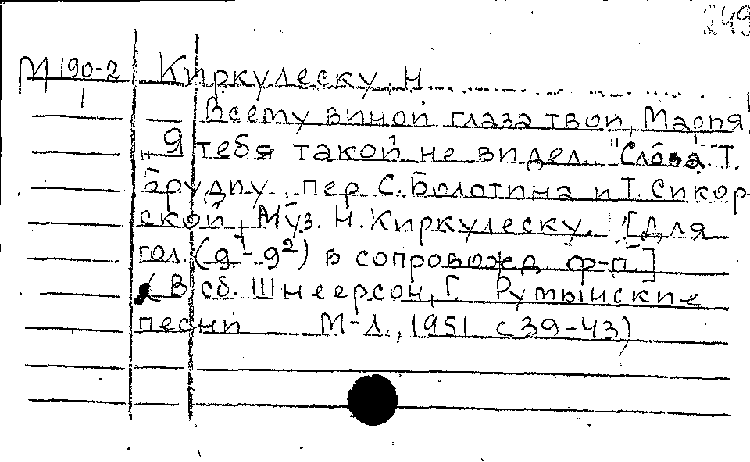 249
М 190-2 Киркулеску, Н.
1
Всему виной глаза твои, Мария.
"Я тебя такой не видел. "Слова Т.
Брудиу, пер. С. Болотина и Т. Сикор-
ской, Муз. Н. Киркулеску. [Для
гол. (g¹-g²) в сопровожд. ф-п.]
(В сб. Шнеерсон, Г. Румынские
песни М-Л., 1951 с 39-43)